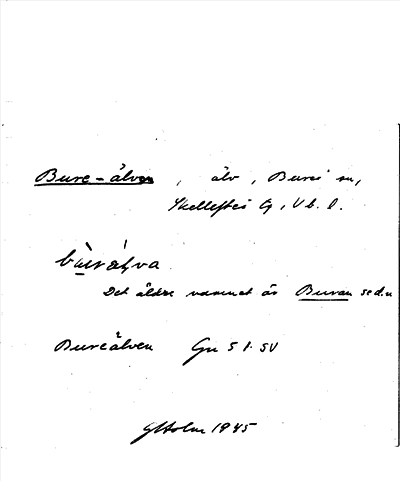 Bure-älven, älv, Bureå sn,
Skellefteå tg, Vb. l.
bùrä̀ḷva
Det äldre namnet är Buran se d.o.
Bureälven Gn 51. SV
GHolm 1945